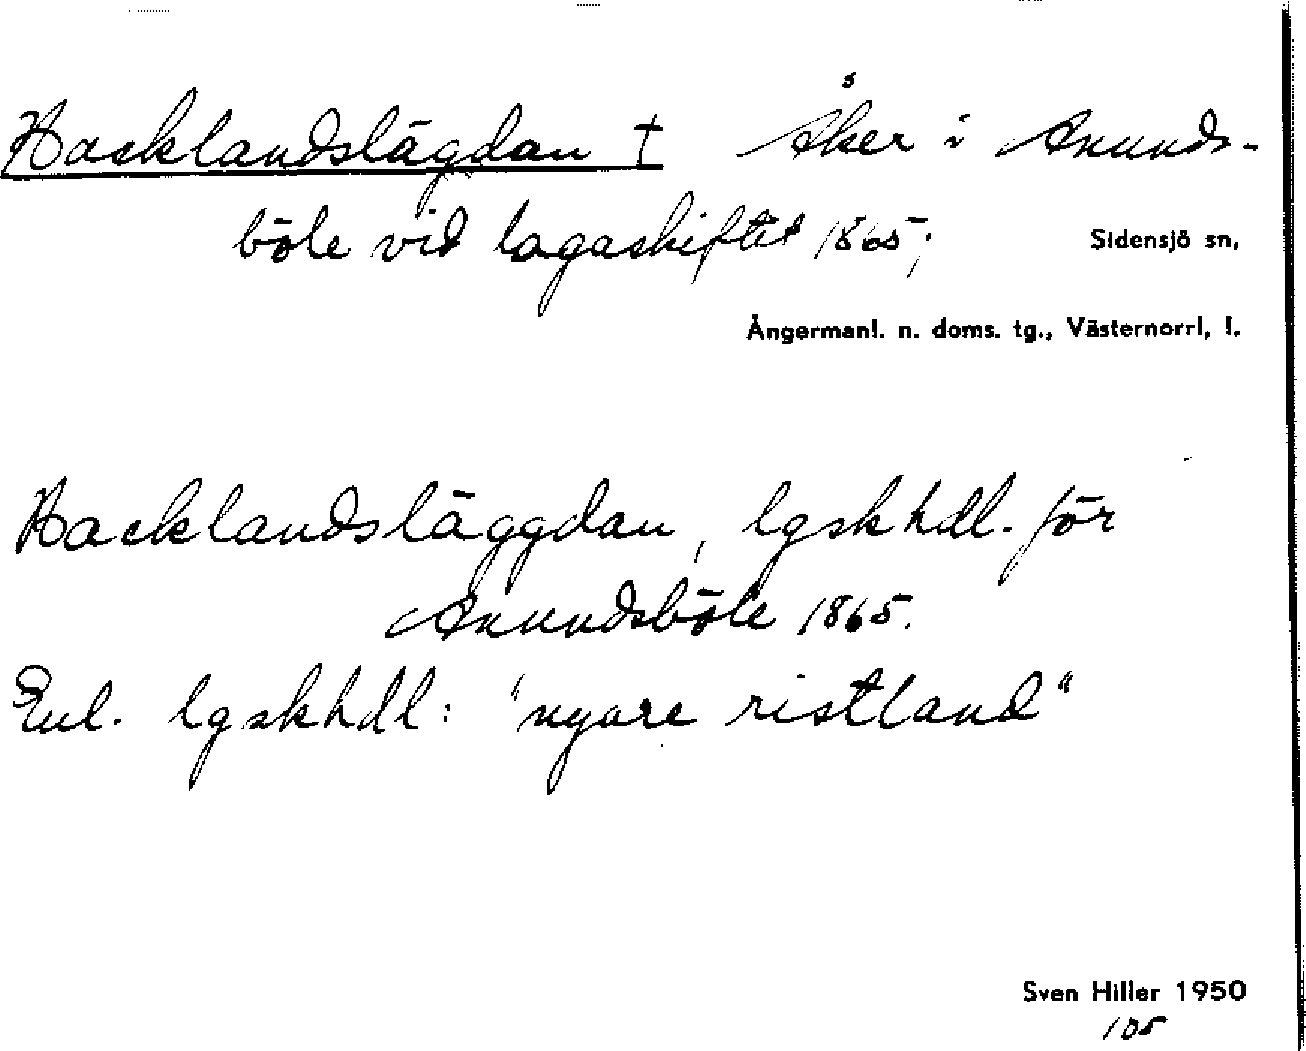 Hacklandslägdan † Åker i Anunds-
böle vid lagaskiftet 1865;
Sidensjö sn,
Ångermanl. n. doms. tg., Västernorrl, l.
Hacklandsläggdan, lgskhdl. för
Anundsböle 1865.
Enl. lgskhdl: "nyare ristland"
Sven Hiller 1950
105